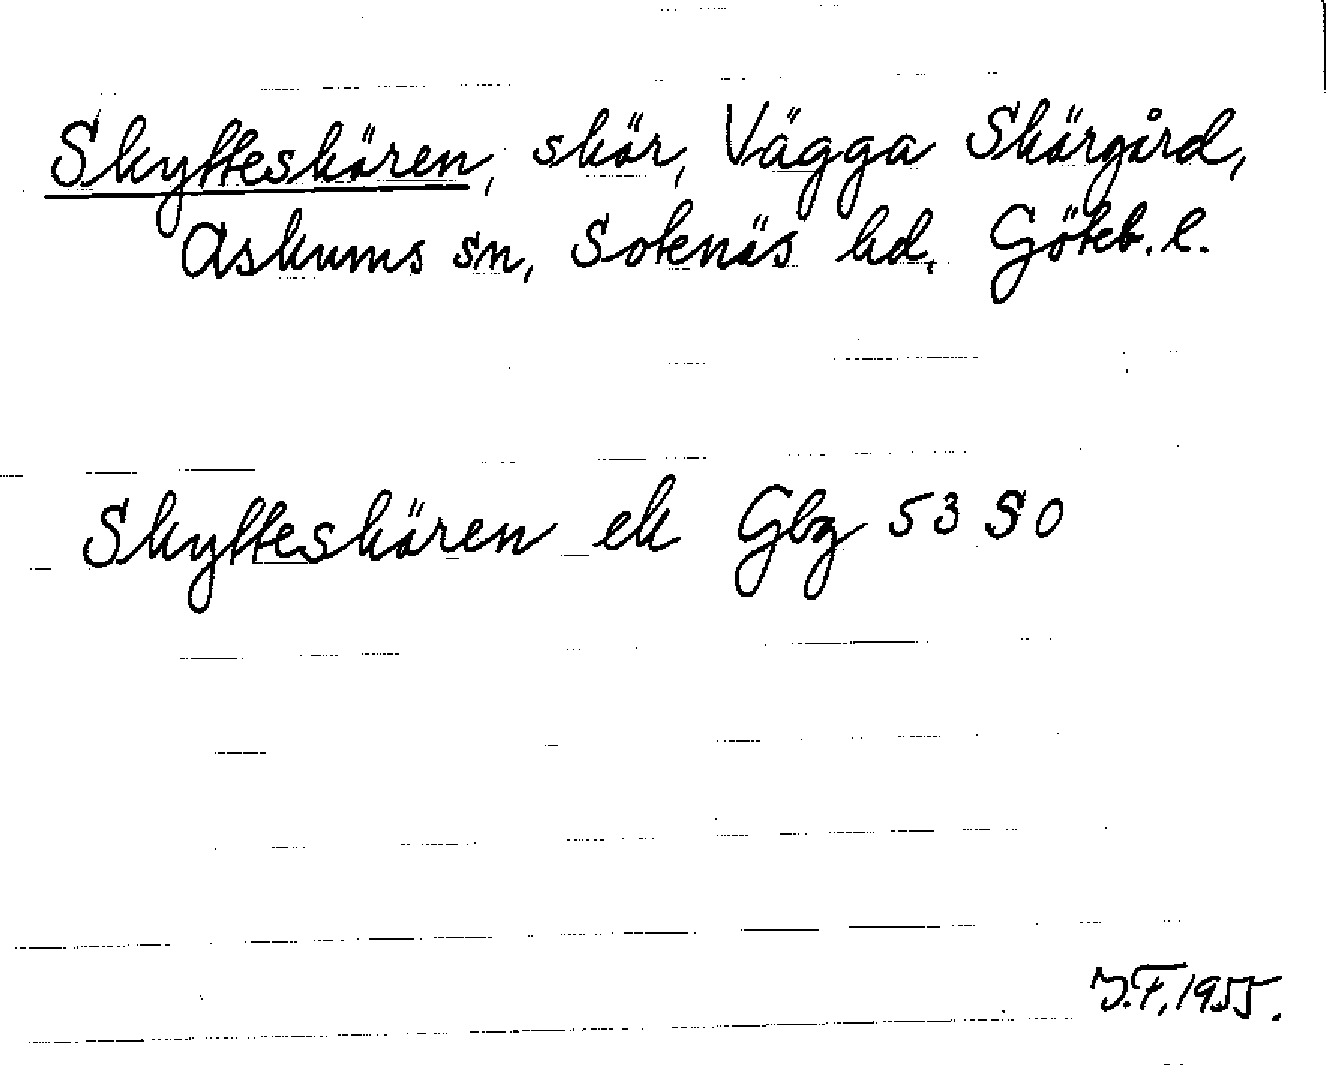 Skytteskären, skär, Vägga Skärgård,
Askums sn, Sotenäs hd. Göteb. l.
Skytteskären ek Gbg 53 SO
J.F. 1955.